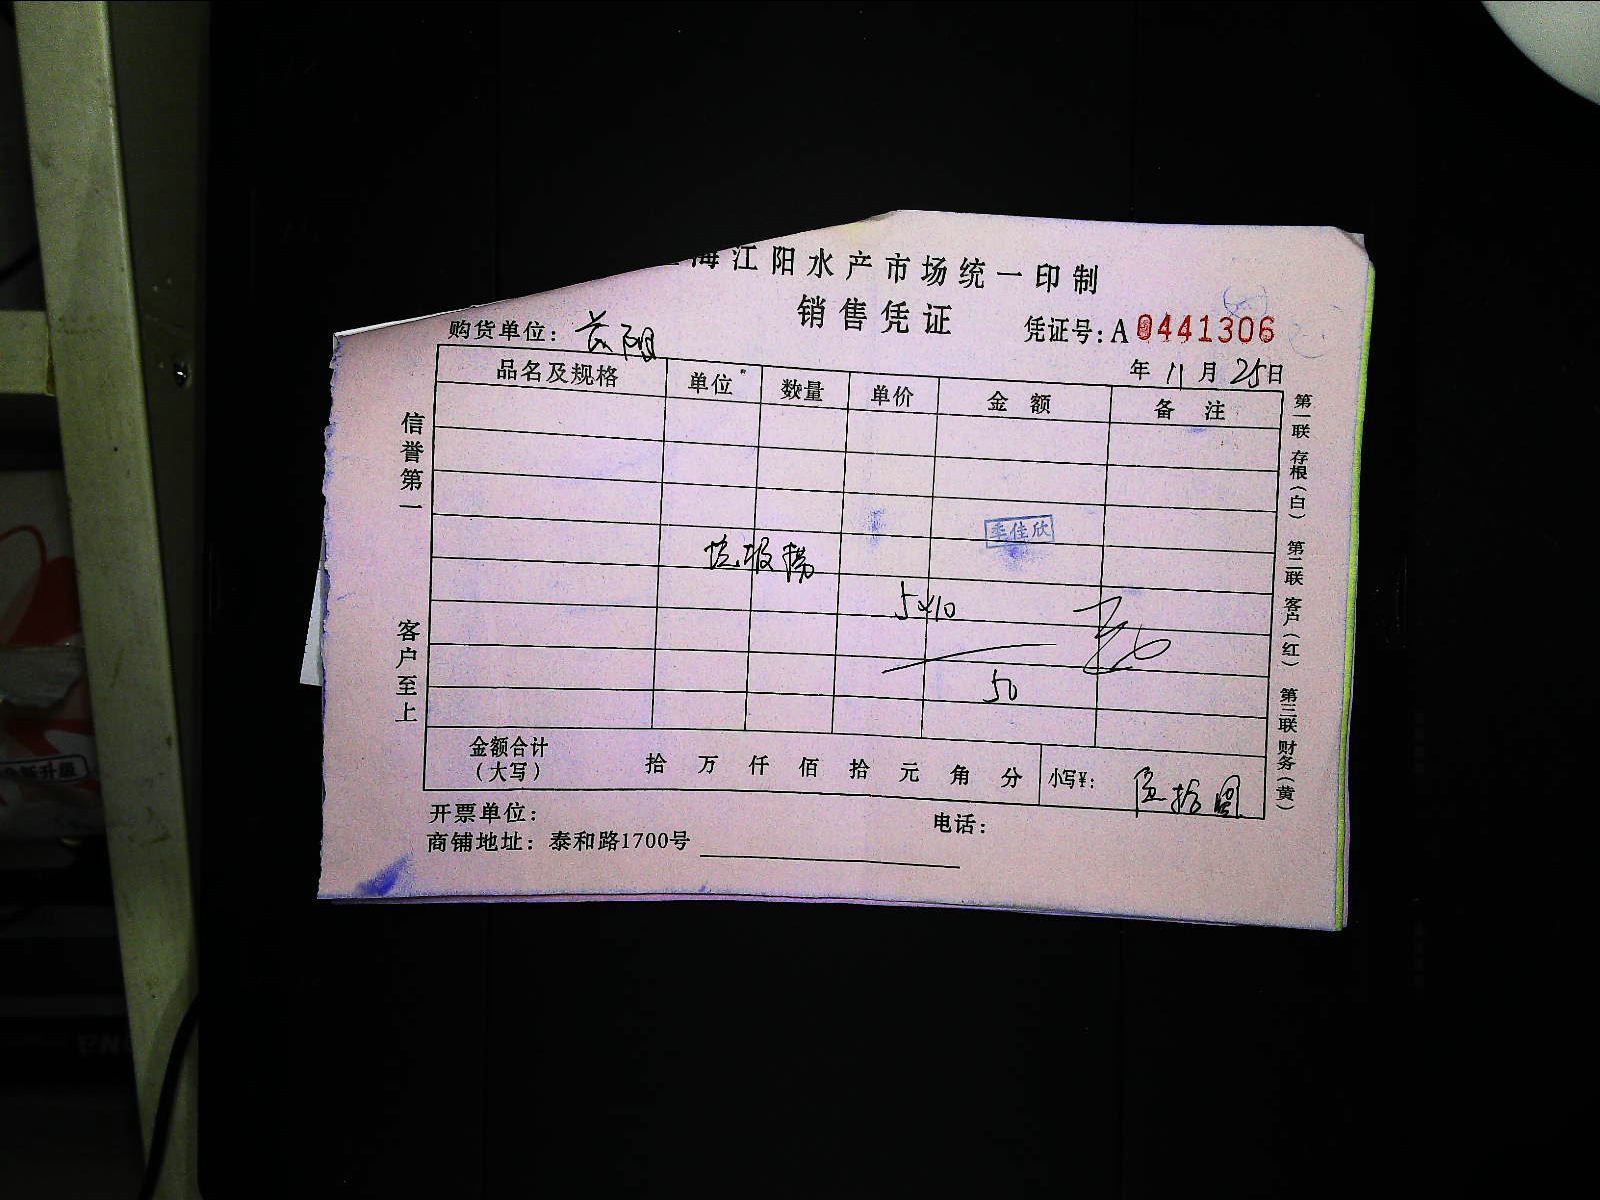 海江阳水产市场统一印制
销售凭证
凭证号:A 0441306
购货单位:
年 11 月 25日
品名及规格 单位 数量 单价 金 额 备 注
信誉第一
客户至上
李佳欣
5×10
50
金额合计(大写) 拾 万 仟 佰 拾 元 角 分 小写¥: 伍拾圆
开票单位: 电话:
商铺地址: 泰和路1700号
第一联 存根(白) 第二联 客户(红) 第三联 财务(黄)